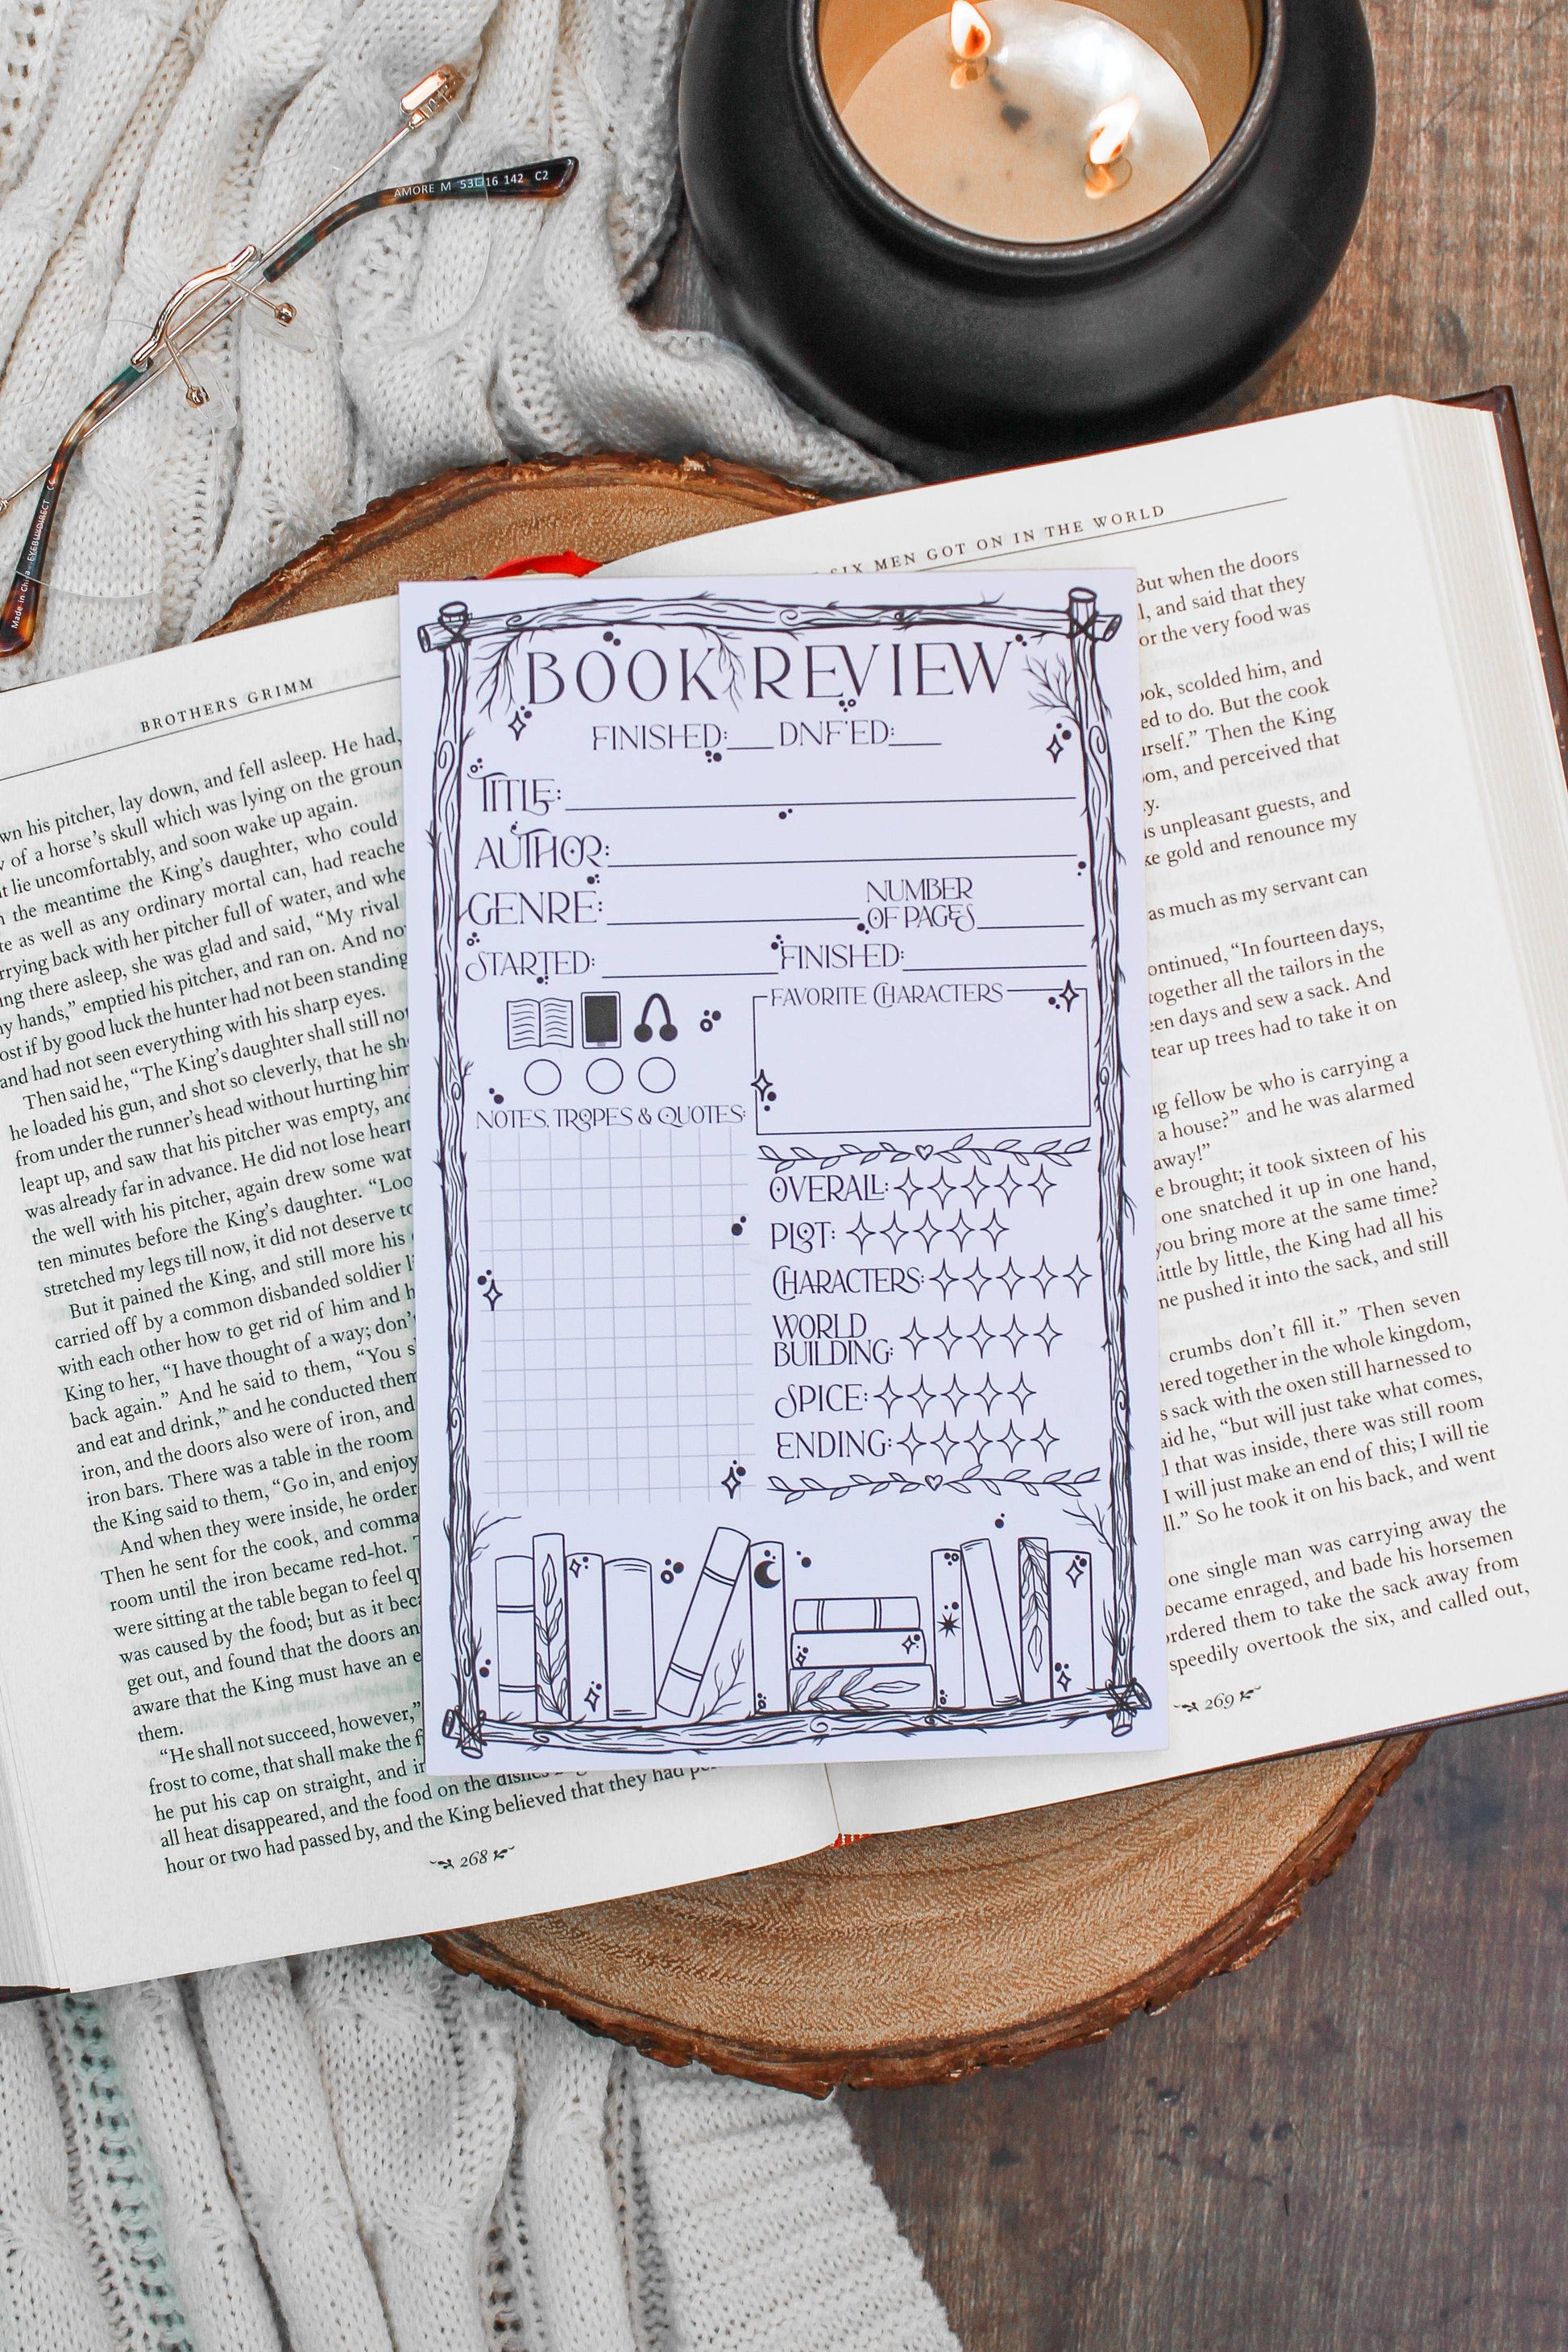 AMORE M 53 16 142 C2
Made in China EYEBUYDIRECT CE
BROTHERS GRIMM
his pitcher, lay down, and fell asleep. He had,
of a horse’s skull which was lying on the
lie uncomfortably, and soon wake up again.
the meantime the King’s daughter, who could
as well as any ordinary mortal can, had
back with her pitcher full of water, and
there asleep, she was glad and said, “My rival
hands,” emptied his pitcher, and ran on. And
if by good luck the hunter had not been standing
and had not seen everything with his sharp eyes.
Then said he, “The King’s daughter shall still
he loaded his gun, and shot so cleverly, that he
from under the runner’s head without hurting him
leapt up, and saw that his pitcher was empty, and
was already far in advance. He did not lose heart
the well with his pitcher, again drew some
ten minutes before the King’s daughter.
stretched my legs till now, it did not deserve to
But it pained the King, and still more his
carried off by a common disbanded soldier
with each other how to get rid of him and
King to her, “I have thought of a way;
back again.” And he said to them, “You
and eat and drink,” and he conducted them
iron, and the doors also were of iron, and
iron bars. There was a table in the room
the King said to them, “Go in, and enjoy
And when they were inside, he
Then he sent for the cook, and
room until the iron became red-hot.
were sitting at the table began to feel
was caused by the food; but as it
get out, and found that the doors
aware that the King must have an
them.
“He shall not succeed, however,”
frost to come, that shall make the
he put his cap on straight, and
all heat disappeared, and the food on the dishes
hour or two had passed by, and the King believed that they had
268
SIX MEN GOT ON IN THE WORLD
But when the doors
and said that they
or the very food was
scolded him, and
to do. But the cook
Then the King
and perceived that
unpleasant guests, and
gold and renounce my
as much as my servant can
“In fourteen days,
together all the tailors in the
days and sew a sack. And
tear up trees had to take it on
fellow be who is carrying a
a house?” and he was alarmed
away!”
brought; it took sixteen of his
one snatched it up in one hand,
you bring more at the same time?
little by little, the King had all his
pushed it into the sack, and still
crumbs don’t fill it.” Then seven
together in the whole kingdom,
sack with the oxen still harnessed to
he, “but will just take what comes,
that was inside, there was still room
I will just make an end of this; I will tie
So he took it on his back, and went
one single man was carrying away the
became enraged, and bade his horsemen
ordered them to take the sack away from
speedily overtook the six, and called out,
269
BOOK REVIEW
FINISHED: DNF'ED:
TITLE:
AUTHOR:
GENRE: NUMBER OF PAGES
STARTED: FINISHED:
FAVORITE CHARACTERS
NOTES, TROPES & QUOTES:
OVERALL:
PLOT:
CHARACTERS:
WORLD
BUILDING:
SPICE:
ENDING: